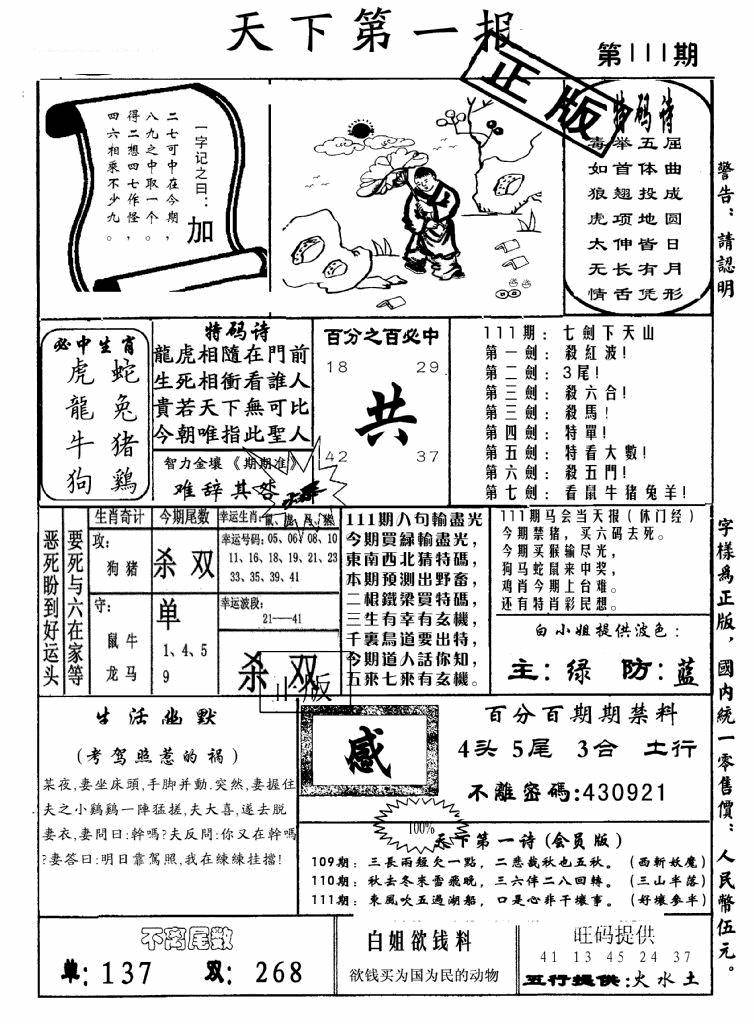 天下第一报
第111期
正版
一字记之曰：
加
二七可中在今期，
八九之中取一个。
得二想四七作怪，
四六相乘不少九。
特码诗
屈曲成圆日月形
五体投地皆有凭
举首翘项伸长舌
毒如狼虎太无情
警告：請認明
字樣為正版，國内統一零售價：人民幣伍元。
必中生肖
虎 蛇
龍 兔
牛 猪
狗 鷄
特码诗
龍虎相隨在門前
生死相衝看誰人
貴若天下無可比
今朝唯指此聖人
智力金壤《期期准》
难辞其咎
百分之百必中
18 29
共
42 37
111期：七劍下天山
第一劍：殺紅波！
第二劍：3尾！
第三劍：殺六合！
第三劍：殺馬！
第四劍：特單！
第五劍：特看大數！
第六劍：殺五門！
第七劍：看鼠牛猪兔羊！
恶死盼到好运头
要死与六在家等
生肖奇计
攻：
狗 猪
守：
鼠 牛
龙 马
今期尾数
杀 双
单
1、4、5
9
幸运生肖：
幸运号码：05、06、08、10
11、16、18、19、21、23
33、35、39、41
幸运波段：
21——41
杀 双
正版
111期八句輸盡光
今期買綠輸盡光，
東南西北猜特碼，
本期預測出野畜，
二根鐵梁買特碼，
三生有幸有玄機。
千裏鳥道要出特，
今期道人話你知，
五來七來有玄機。
111期马会当天报（休门经）
今期禁猪，买六码去死。
今期买猴输尽光，
狗马蛇鼠来中奖，
鸡肖今期上台难。
还有特肖彩民想。
白小姐提供波色：
主：绿 防：蓝
生活幽默
(考驾照惹的祸)
某夜,妻坐床頭,手脚并動.突然,妻握住
夫之小鷄鷄一陣猛搓,夫大喜,遂去脱
妻衣,妻問曰:幹嗎?夫反問:你又在幹嗎
?妻答曰:明日靠駕照,我在練練挂擋!
感
百分百期期禁料
4头 5尾 3合 土行
不離密碼:430921
100%
天下第一诗(会员版)
109期：三長兩短欠一點，二悲哉秋也五秋。（西斩妖魔）
110期：秋去冬來雪飛晚，三六伴二八回轉。（三山半落）
111期：東風吹五過湖船，口是心非干壞事。（好壤参半）
不离尾数
单: 137 双: 268
白姐欲钱料
欲钱买为国为民的动物
旺码提供
41 13 45 24 37
五行提供:火水土